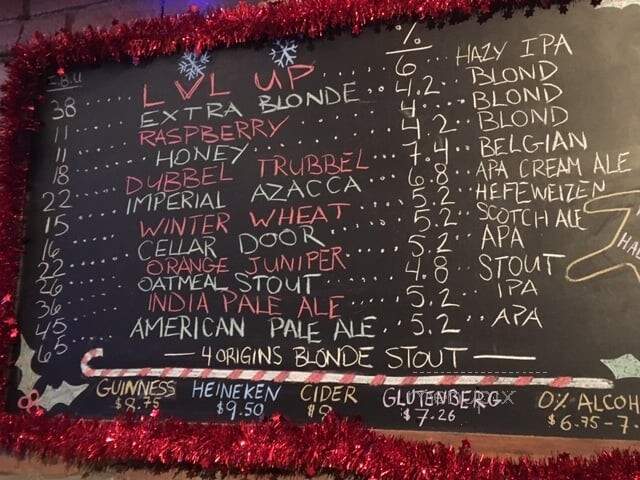 I.B.U %
38 LVL UP 6 HAZY IPA
11 EXTRA BLONDE 4.2 BLOND
11 RASPBERRY 4 BLOND
18 HONEY 4.2 BLOND
22 DUBBEL TRUBBEL 7.4 BELGIAN
15 IMPERIAL AZACCA 6.8 APA CREAM ALE
16 WINTER WHEAT 5.2 HEFEWEIZEN
22 CELLAR DOOR 5.2 SCOTCH ALE
26 ORANGE JUNIPER 5.2 APA
36 OATMEAL STOUT 4.8 STOUT
45 INDIA PALE ALE 5.2 IPA
65 AMERICAN PALE ALE 5.2 APA
— 4 ORIGINS BLONDE STOUT —
GUINNESS HEINEKEN CIDER GLUTENBERG 0% ALCOH
$8.75 $9.50 $9 $7.26 $6.75-7.